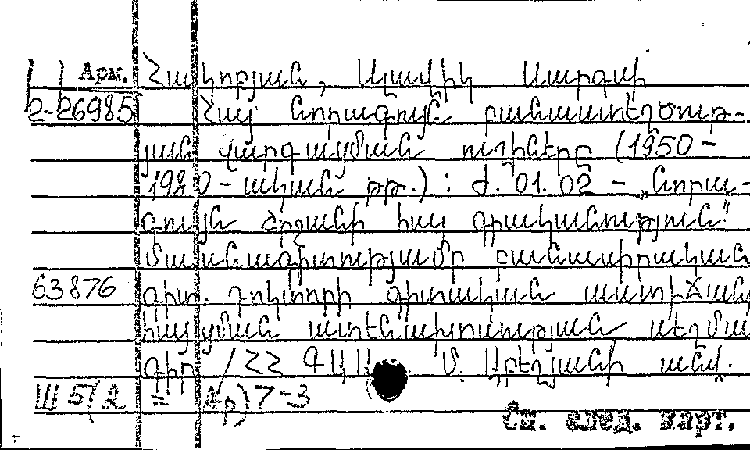 Арм. Հակոբյան, Ալավիկ Սարգսի
2-26985 Հայ նորագույն բանաստեղծութ-
յան զարգացման ուղիները (1950-
1980-ական թթ.) : Ժ. 01. 02 - „Նորա-
գույն շրջանի հայ գրականություն"
մասնագիտությամբ բանասիրական
63876 գիտ. դոկտորի գիտական աստիճանի
հայցման ատենախոսության սեղմա
գիր / ՀՀ ԳԱԱ Մ. Աբեղյանի անվ.
Ш 5(2 = Ар) 7-3
См. след. карт.